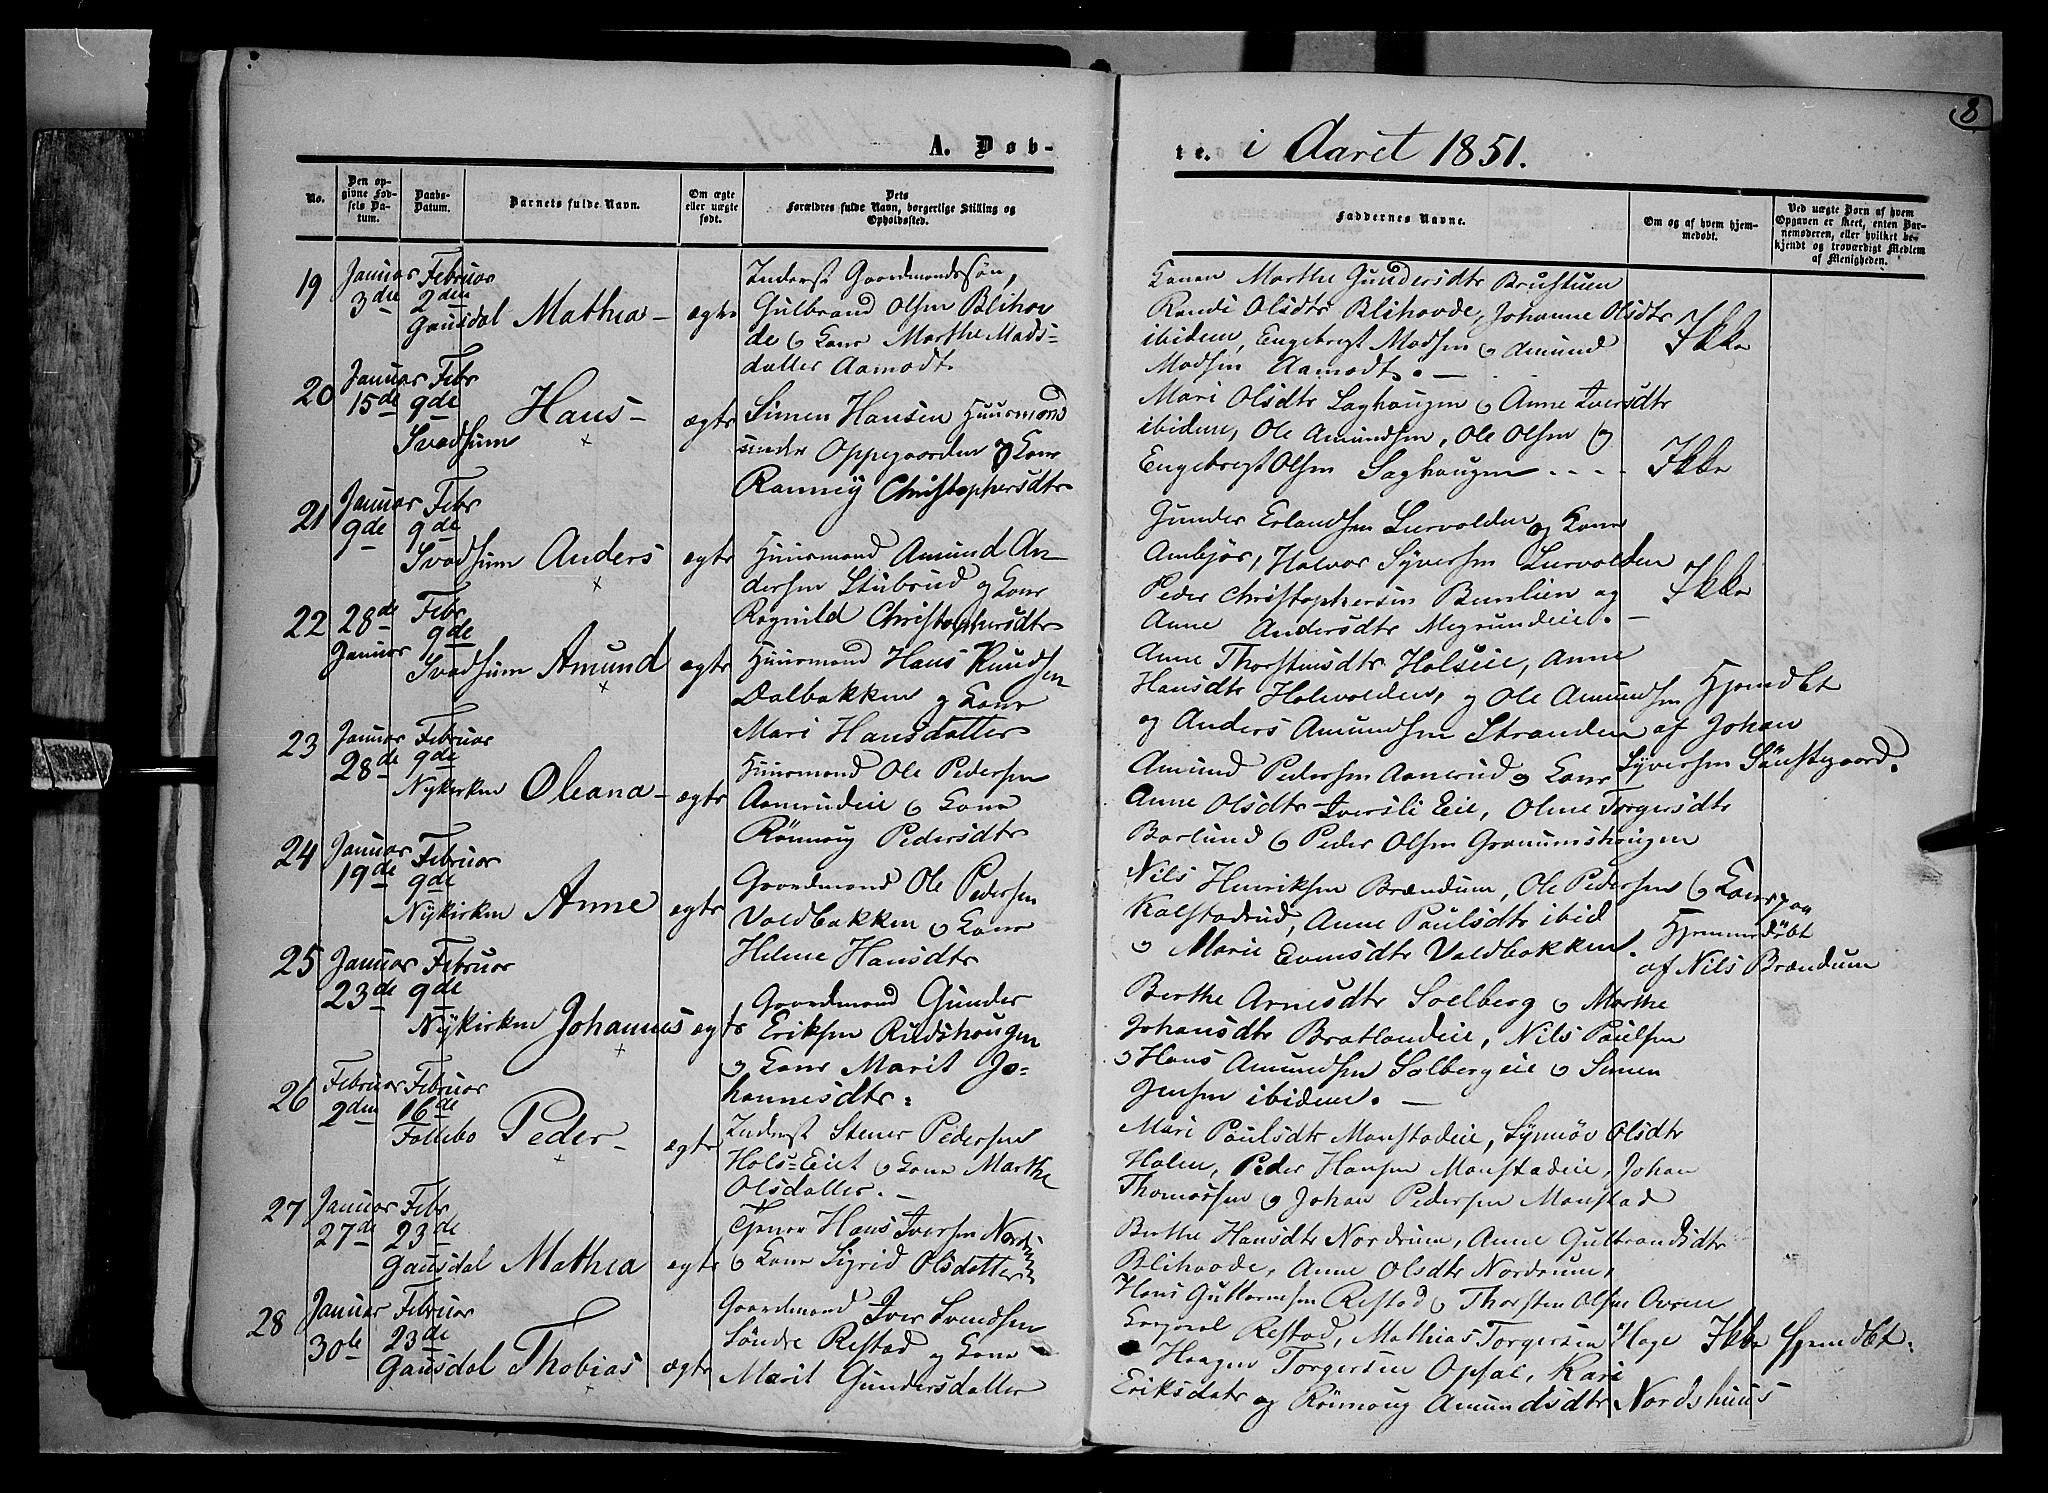 8
A. Døb-
te. i Aaret 1851.
No.
Den op-
givne Fød-
sels Da-
tum.
Daabs-
Datum.
Barnets fulde Navn.
Om ægte
eller uægte
født.
Dets
Forældres fulde Navn, borgerlige Stilling og
Opholdssted.
Faddernes Navne.
Om og af hvem hjem-
medøbt.
Ved uægte Børn af hvem
Opgaven er skeet, enten Bar-
nemoderen, eller hvilket be-
kjendt og troværdigt Medlem
af Menigheden.
19
Januar
3die
Februar
2den
Gausdal
Mathea
ægte
Inderst Gaardmandssøn,
Gulbrand Olsen Blihov
de og Kone Marthe Mads-
datter Aamodt
Konen Marthe Gundersdtr Brustuen
Randi Olsdtr Blihovde, Johanne Olsdtr
ibidem, Engebregt Madsen og Amund
Madsen Aamodt. —
Ikke
20
Januar
15de
Febr
9de
Svadsum
Hans
ægte
Simen Hansen Huusmand
under Oppegaarden og Kone
Rannøy Christophersdtr
Mari Olsdtr Laghaugen og Anne Iversdtr
ibidem, Ole Amundsen, Ole Olsen og
Engebregt Olsen Saghaugen
Ikke
21
Januar
9de
Febr
9de
Svadsum
Anders
ægte
Huusmand Amund An-
dersen Stubrud og Kone
Ragnild Christophersdtr
Gunder Erlandsen Lurvolden og Kone
Ambjør, Halvor Syversen Lurvolden
Peder Christophersen Bunlien og
Anne Andersdtr Megrundeie. —
Ikke
22
28de
Januar
Febr
9de
Svadsum
Amund
ægte
Huusmand Hans Knudsen
Dalbakken og Kone
Mari Hansdatter
Anne Thorstensdtr Holseie, Anne
Hansdtr Holevolden, og Ole Amundsen
og Anders Amundsen Stranden
Hjemdbt
af Johan
Syversen Sønstegaard.
23
Januar
28de
Februar
9de
Nykirken
Oleana
ægte
Huusmand Ole Pedersen
Aamrudeie og Kone
Rönnoug Pedersdtr
Amund Pedersen Aanerud og Kone
Anne Olsdtr Iversli Eie, Oline Torgersdtr
Barlund og Peder Olsen Granumshougen
24
Januar
19de
Februar
9de
Nykirken
Anne
ægte
Gaardmand Ole Pedersen
Voldbakken og Kone
Helene Hansdtr
Nils Henriksen Brændum, Ole Pedersen og Kone paa
Kalstadrud, Anne Paulsdtr ibid
og Marie Evensdtr Voldbakken.
Hjemmedøbt
af Nils Brændum
25
Januar
23de
Februar
9de
Nykirken
Johannes
ægte
Gaardmand Gunder
Eriksen Rudshougen
og Kone Marit Jo-
hannesdtr.
Berthe Arnesdtr Solberg og Marthe
Johansdtr Bratlandeie, Nils Paulsen
og Hans Amundsen Solbergeie og Simen
Jensen ibidem. —
26
Februar
2den
Februar
16de
Follebo
Peder
ægte
Inderst Stener Pedersen
Hols-Eiet og Kone Marthe
Olsdatter. —
Mari Paulsdtr Manstadeie, Synnøv Olsdtr
Holen, Peder Hansen Manstadeie, Johan
Thomassen og Johan Pedersen Manstad
27
Januar
27de
Febr
23de
Gausdal
Mathea
ægte
Tjener Hans Iversen Nordrum
og Kone Sigrid Olsdatter
Berthe Hansdtr Nordrum, Anne Gulbrandsdtr
Blihovde, Anne Olsdtr Nordrum,
Hans Guttormsen Restad og Thorsten Olsen Ovren
28
Januar
30te
Februar
23de
Gausdal
Thobias
ægte
Gaardmand Iver Svendsen
Söndre Restad og Kone
Marit Gundersdatter
Corporal Restad, Mathias Torgersen Hage
Haagen Torgersen Opsal, Kari
Eriksdatr og Rönnoug Amundsdtr Nordshuus
Ikke Hjemdbt.